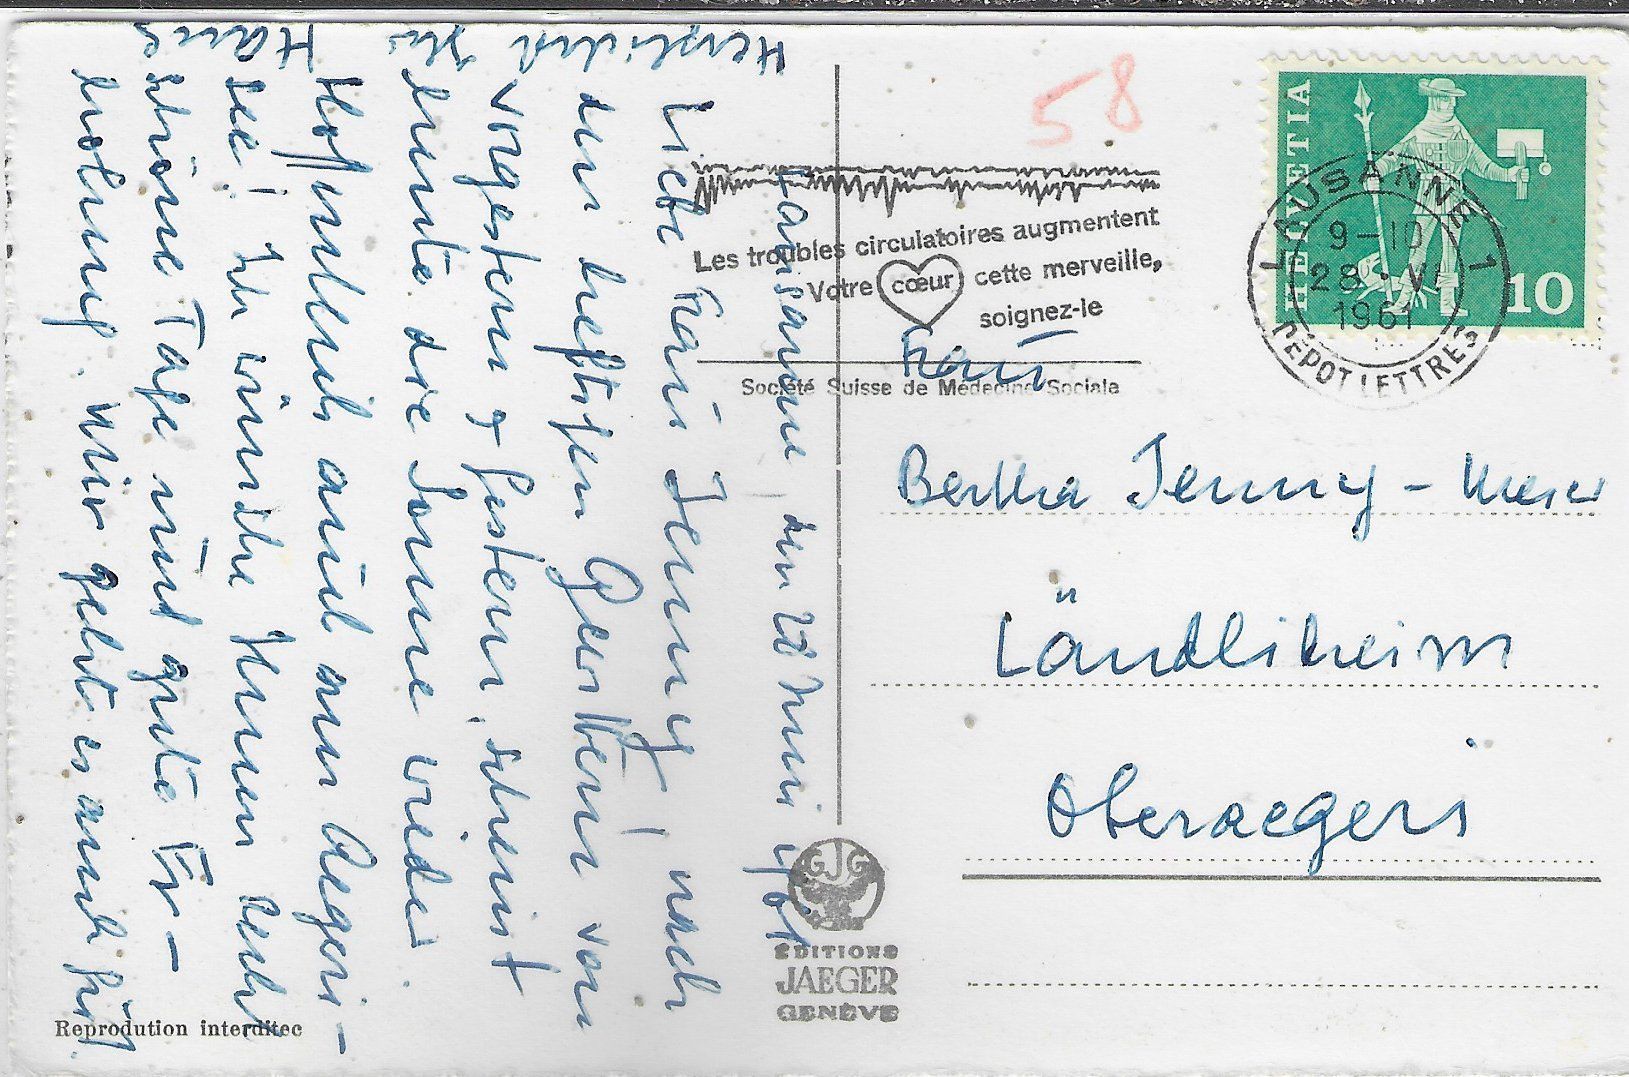 Lausanne, den 28 Juni 1961
Liebe Frau Jenny! nach
den heftigen Gewittern von
vorgestern & gestern, scheint
heute die Sonne wieder.
Hoffentlich auch am Aegeri-
see! Ich wünsche Ihnen recht
schöne Tage und gute Er-
holung. Mir geht es auch gut.
Herzlichst Ihr
58
Les troubles circulatoires augmentent
Votre cœur cette merveille,
soignez-le
Société Suisse de Médecine Sociale
HELVETIA
10
LAUSANNE 1
9-10
28. VI
1961
DEPOT LETTRES
Frau
Bertha Jenny - Meier
Ländliheim
Oberaegeri
GJG
EDITIONS
JAEGER
GENÈVE
Reprodution interditec